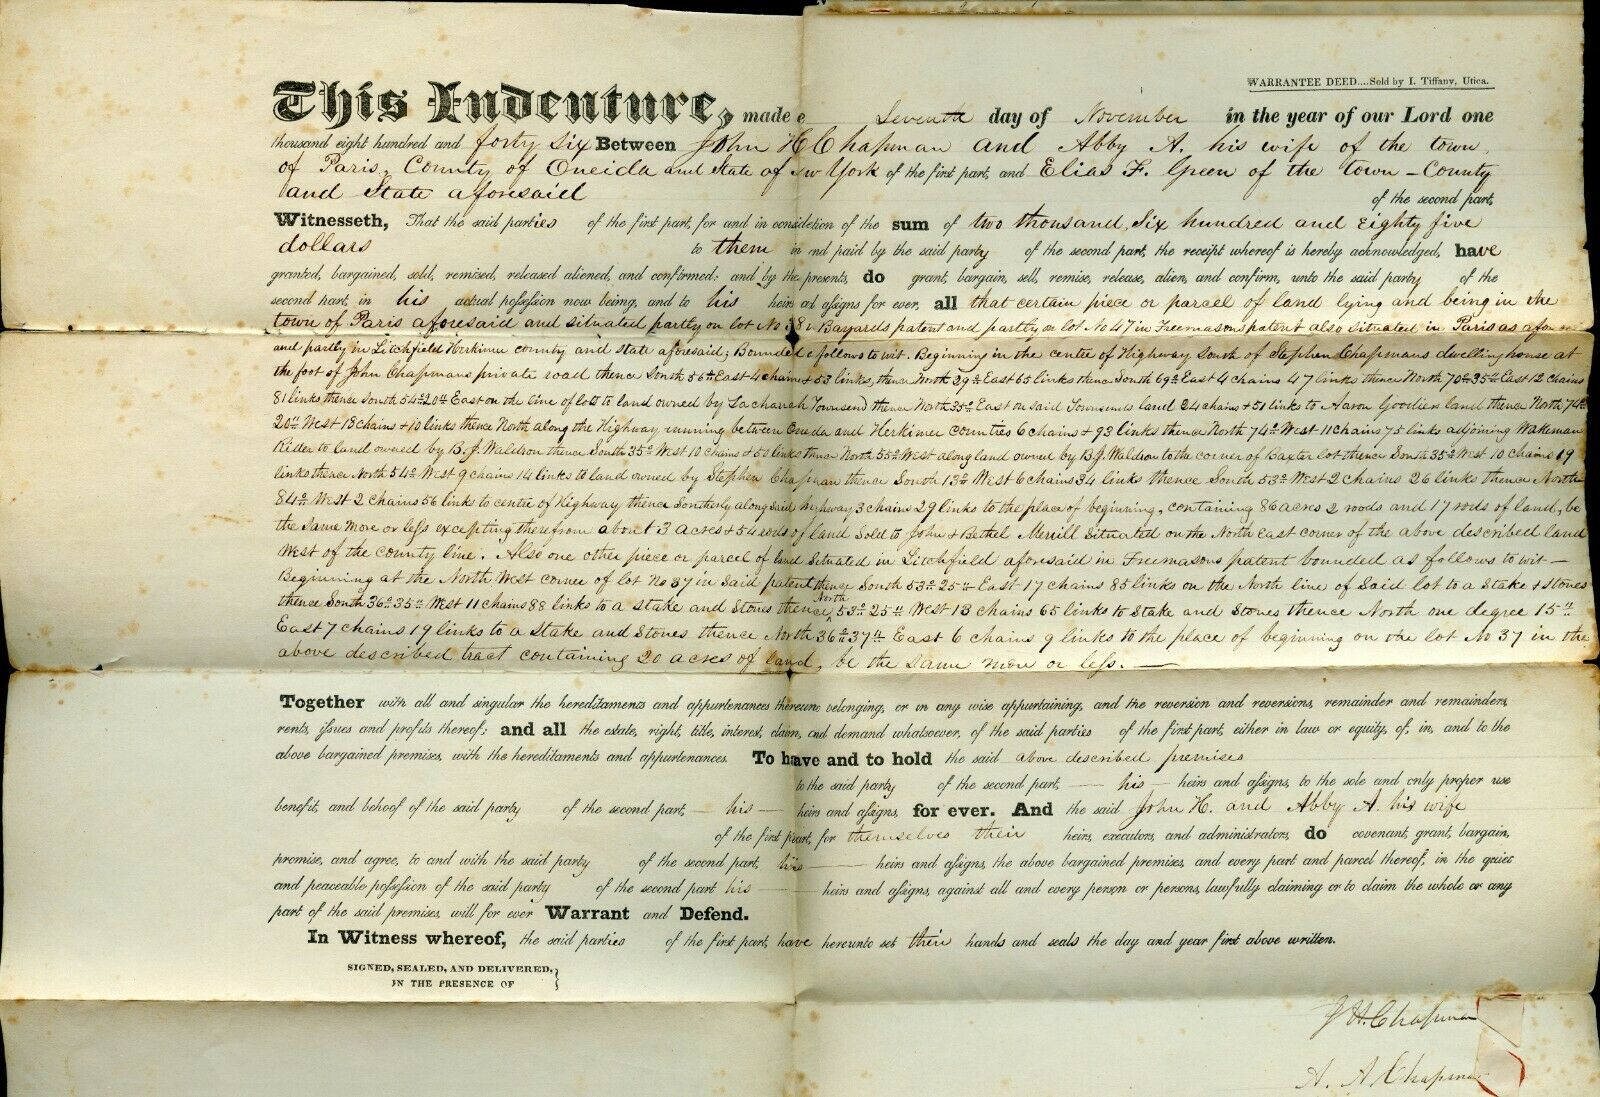 WARRANTEE DEED....Sold by I. Tiffany, Utica.
This Indenture, made Seventh day of November in the year of our Lord one
thousand eight hundred and forty six Between John H Chapman and Abby A. his wife of the town
of Paris, County of Oneida and State of New York of the first part, and Elias F. Green of the town – County
and State aforesaid of the second part,
Witnesseth, That the said parties of the first part, for and in consideration of the sum of two thousand, Six hundred and Eighty five
dollars to them in nd paid by the said party of the second part, the receipt whereof is hereby acknowledged, have
granted, bargained, sold, remised, released aliened, and confirmed; and by the presents, do grant, bargain, sell, remise, release, alien, and confirm, unto the said party of the
second part, in his actual possession now being, and to his heirs and assigns for ever, all that certain piece or parcel of land lying and being in the
town of Paris aforesaid and situated partly on lot No 8 in Bayards patent and partly on lot No 47 in Freemasons patent also situated in Paris as afore
and partly in Litchfield Herkimer county and state aforesaid; Bounded as follows to wit. Beginning in the centre of Highway South of Stephen Chapmans dwelling house at
the foot of John Chapmans private road thence South 56° East 4 chains + 53 links, thence North 29° East 65 links thence South 69° East 4 chains 47 links thence North 70° 35" East 12 chains
81 links thence South 54° 20" East on the line of lots to land owned by Townsend thence North 35° East on said Townsends land 24 chains + 51 links to Aaron Goodiers land thence North 74°
20" West 18 chains + 10 links thence North along the Highway running between Oneida and Herkimer Counties 6 chains + 93 links thence North 74° West 11 chains 75 links adjoining Wakeman
Rider to land owned by B. J. Waldron thence South 35° West 10 chains + 50 links thence North 55° West along land owned by B. J. Waldron to the corner of Baxter lot thence South 35° West 10 chains 19
links thence North 54° West 9 chains 14 links to land owned by Stephen Chapman thence South 13° West 6 chains 34 links thence South 53° West 2 chains 26 links thence North
84° West 2 chains 56 links to centre of Highway thence Southerly along said highway 3 chains 29 links to the place of beginning, containing 86 acres 2 roods and 17 rods of land, be
the same more or less excepting therefrom about 3 acres + 54 rods of land sold to John & Bethel Merrill Situated on the North East corner of the above described land
West of the county line. Also one other piece or parcel of land Situated in Litchfield aforesaid in Freemasons patent bounded as follows to wit –
Beginning at the North West corner of lot No 37 in said patent thence South 53° 25" East 17 chains 85 links on the North line of Said lot to a Stake + Stones
thence South 36° 35" West 11 chains 88 links to a stake and Stones thence North 53° 25" West 18 chains 65 links to Stake and Stones thence North one degree 15"
East 7 chains 19 links to a Stake and Stones thence North 36° 37" East 6 chains 9 links to the place of beginning on the lot No 37 in the
above described tract containing 20 acres of land, be the same more or less. —
Together with all and singular the hereditaments and appurtenances thereunto belonging, or in any wise appurtaining, and the reversion and reversions, remainder and remainders,
rents, issues and profits thereof; and all the estate, right, title, interest, claim, and demand whatsoever, of the said parties of the first part, either in law or equity, of, in, and to the
above bargained premises, with the hereditaments and appurtenances. To have and to hold the said above described premises
to the said party of the second part, — his — heirs and assigns, to the sole and only proper use
benefit, and behoof of the said party of the second part, — his — heirs and assigns, for ever. And the said John H. and Abby A. his wife
of the first part, for themselves their heirs, executors, and administrators, do covenant, grant, bargain,
promise, and agree, to and with the said party of the second part, his — heirs and assigns, the above bargained premises, and every part and parcel thereof, in the quiet
and peaceable possession of the said party of the second part his — heirs and assigns, against all and every person or persons, lawfully claiming or to claim the whole or any
part of the said premises, will for ever Warrant and Defend.
In Witness whereof, the said parties of the first part, have hereunto set their hands and seals the day and year first above written.
SIGNED, SEALED, AND DELIVERED,
IN THE PRESENCE OF
J H. Chapman
A. A Chapman